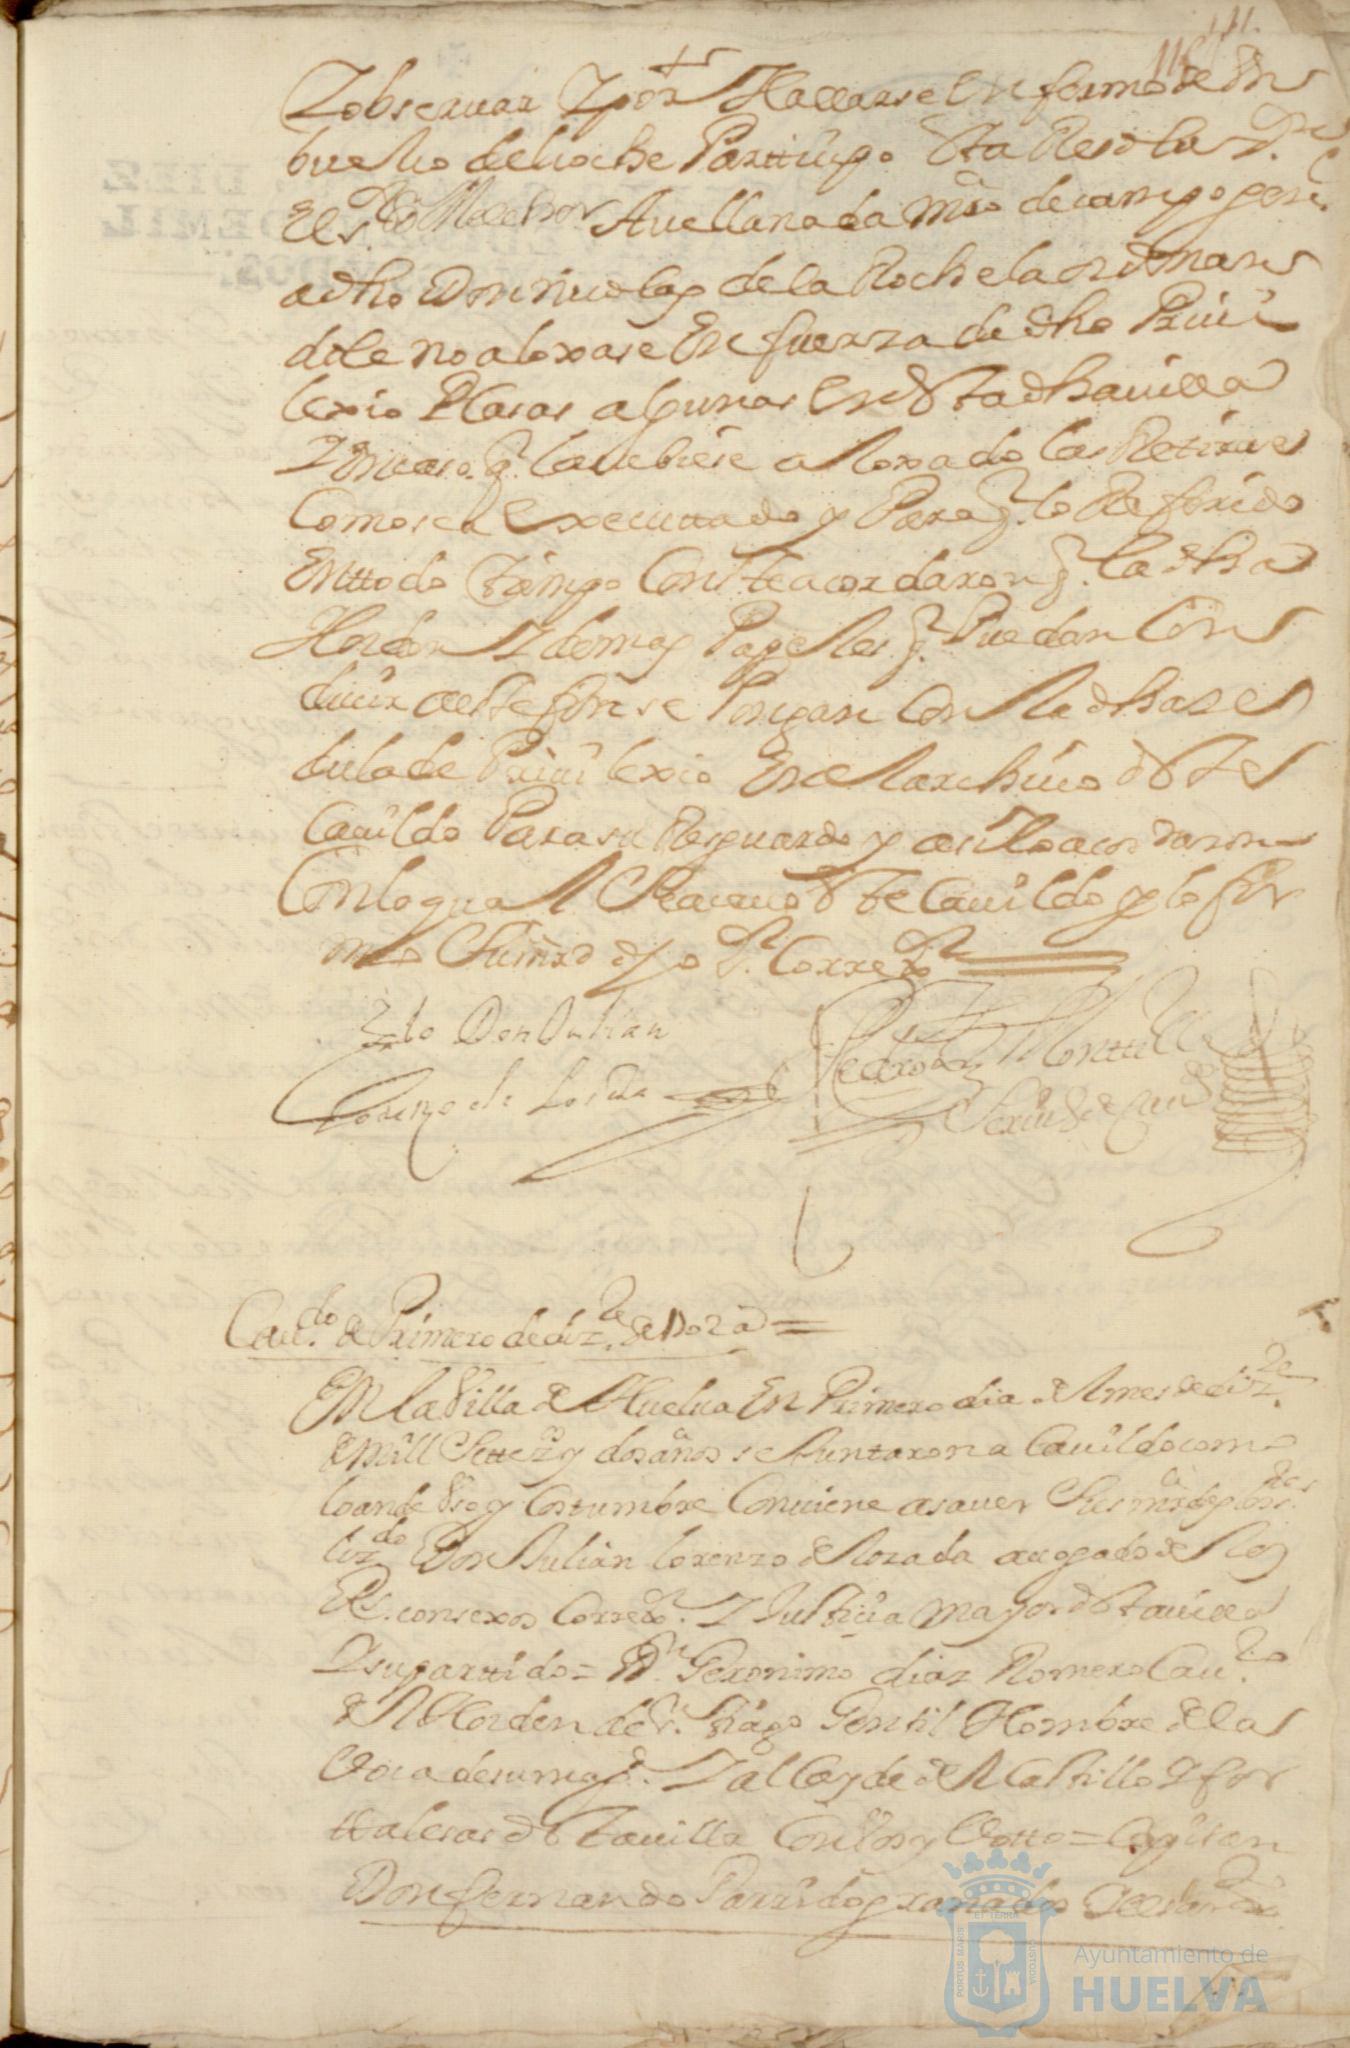 111.
116
Y observar Y por Hallarse Enfermo de Un
buelco de coche Partiçipo Sta Resoluz.on
El s.r D.n Melchor Avellaneda mro de campo gen.l
a dho Don nicolas de la Rochela ordenan
dole no aloxase En fuerza de dho Privi
lexio Plasas algunas En Esta dha villa
Y En caso q. las ubiese aloxado las Retirase
Como se a Executtado y Para q. lo Referido
En ttodo Tiempo Conste acordaron q. la dha
Horden Y demas Papeles q. Puedan Con
duçir a este fin se Pongan Con la dha Ze
dula de Privilexio En el archivo de Este
Cavildo Para su Resguardo y asi lo acordaron
Con lo qual Se acavo Este Cavildo y lo fir
mo Su mrd de dho S.r Corre.or
Lzdo Don Julian
Lorenzo de Losada
Pedro Montiel
Serui.o de Cau.do
Cau.do de Primero de diz.re de 1702 a.s
En la Villa de Huelva En Primero dia del mes de diz.re
de mill Sette z.os y dos años se Juntaron a Cavildo como
lo an de Uso y Costumbre Conviene a saver Sus mrdes los s.res
liz.do Don Julian lorenzo de losada avogado de los
R.s consexos Corre.or Y Justiçia mayor de Esta villa
Y su parttido = D.n Geronimo diaz Romero Cau.ro
del Horden de S.r Thiago Gentil Hombre de la
Voca de su mag.d Y alcayde del Castillo Y for
ttalesas de Esta villa Con Vos y Votto = Capitan
Don fernando Parrido granados
PORTUS MARIS ET TERRÆ CUSTODIA
Ayuntamiento de
HUELVA